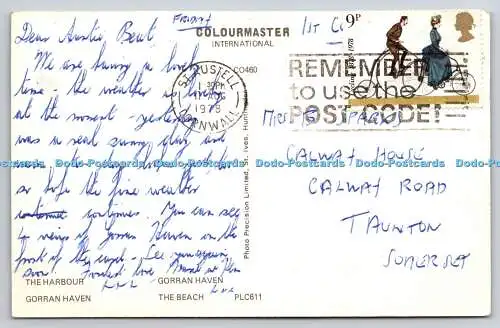 FRIDAY
Dear Auntie Beat
We are having a lovely
time - the weather is lovely
at the moment - yesterday
was a real sunny day and
so hope the fine weather
continues. You can see
views of Gorran Haven on the
front of the card - See you
soon. Fondest love
COLOURMASTER
INTERNATIONAL
CO460
Photo Precision Limited, St. Ives, Huntingdon
THE HARBOUR GORRAN HAVEN
GORRAN HAVEN THE BEACH PLC611
1st
9p
1978
ST AUSTELL
1978
CORNWALL
REMEMBER
to use the
POST CODE
MRS B SPARKS
CALWAY HOUSE
CALWAY ROAD
TAUNTON
SOMERSET
Dodo-Postcards Dodo-Postcards Dodo-Postcards Dodo-Postcards Dodo-Postcards